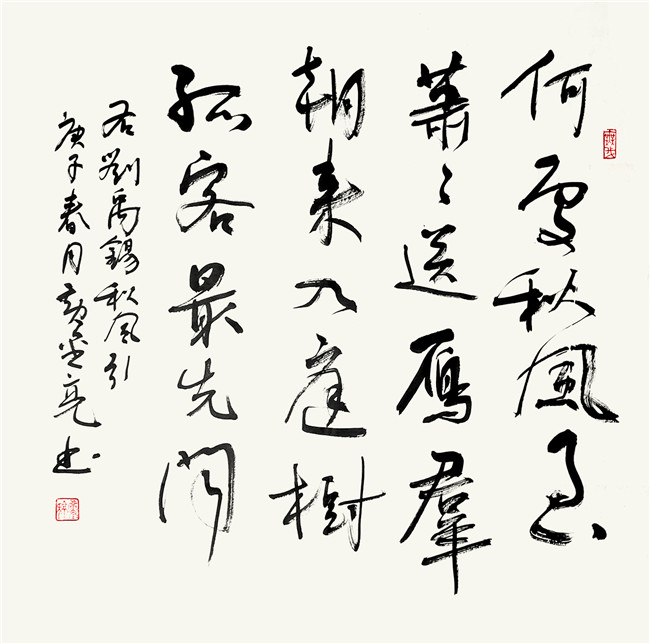 何處秋風至
蕭〻送鴈羣
朝来入庭樹
孤客最先聞
右劉禹錫秋風引
庚子春月亮书